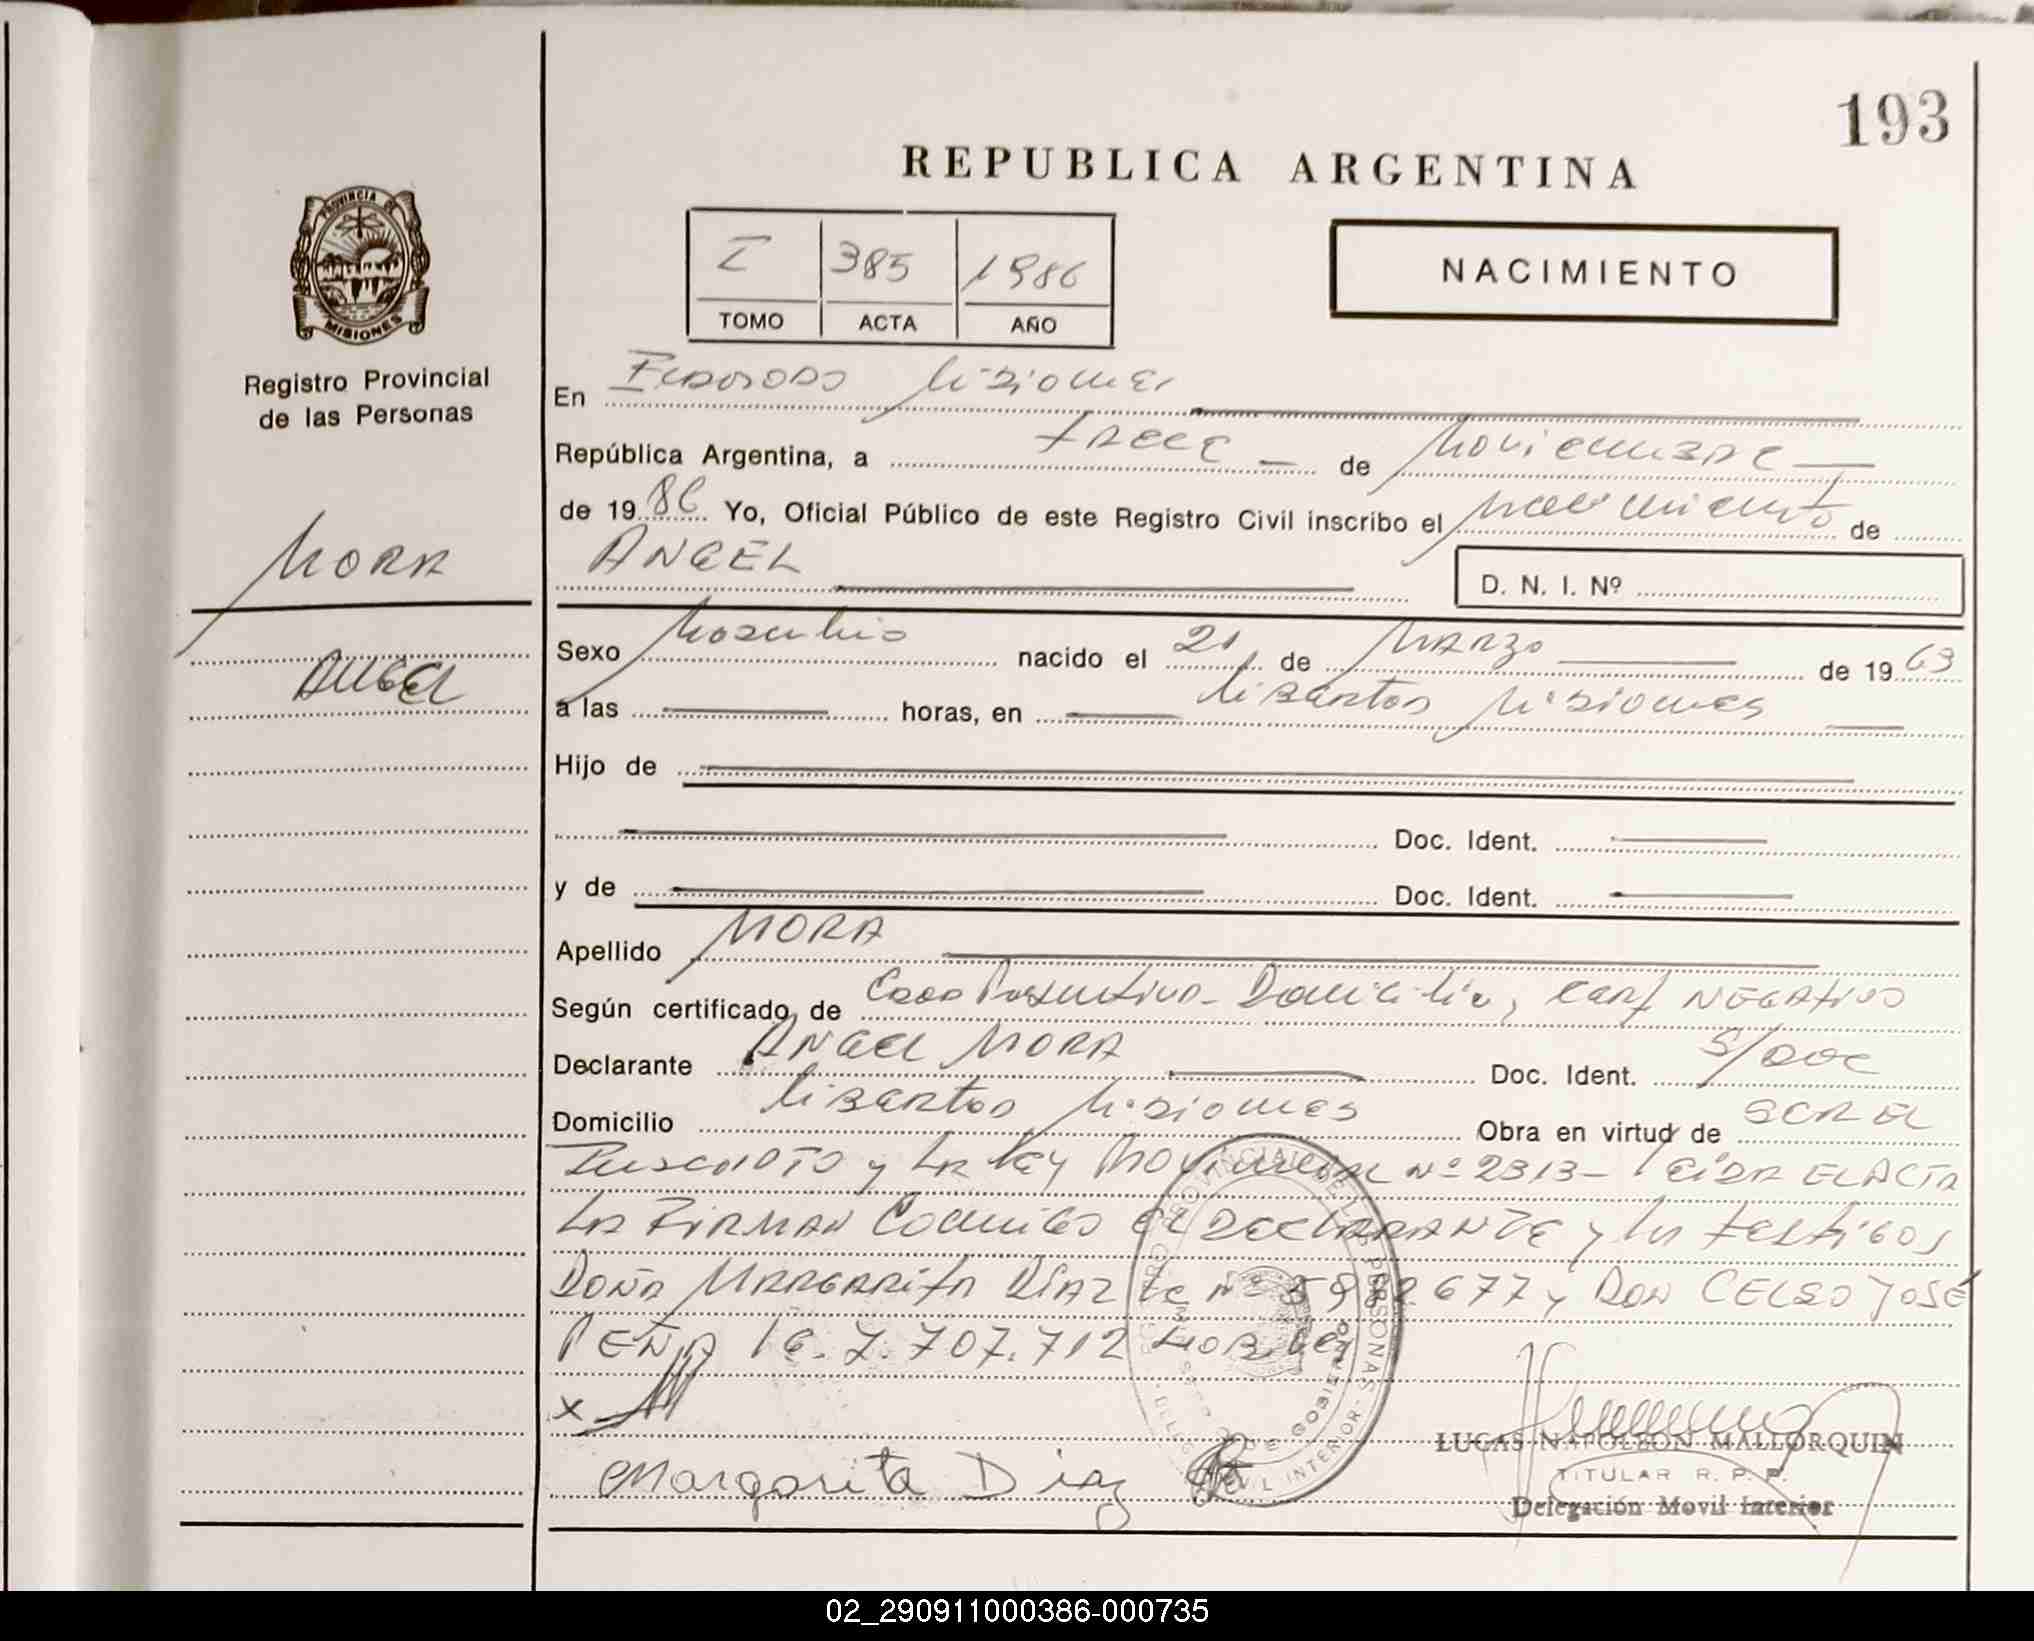 193
REPUBLICA ARGENTINA
PROVINCIA DE
MISIONES
Registro Provincial
de las Personas
I 385 1986
TOMO ACTA AÑO
NACIMIENTO
En Eldorado Misiones
República Argentina, a trece de noviembre
de 1986 Yo, Oficial Público de este Registro Civil inscribo el nacimiento de
ANGEL
D. N. I. Nº
MORA
ANGEL
Sexo Masculino nacido el 21 de MARZO de 1963
a las horas, en Libertad Misiones
Hijo de
Doc. Ident.
y de Doc. Ident.
Apellido MORA
Según certificado de Domicilio, NEGATIVO
Declarante ANGEL MORA Doc. Ident. S/DOC
Domicilio Libertad Misiones Obra en virtud de SER EL
y LA Ley Provincial Nº 2313- Leída EL ACTA
LA FIRMAN Conmigo el DECLARANTE y los testigos
DOÑA MARGARITA DIAZ LC Nº 677 y DON CELSO JOSÉ
PEÑA le. 7.707.712
X
Margarita Diaz
LUCAS NAPOLEON MALLORQUIN
TITULAR R. P. P.
Delegación Movil Interior
02_290911000386-000735